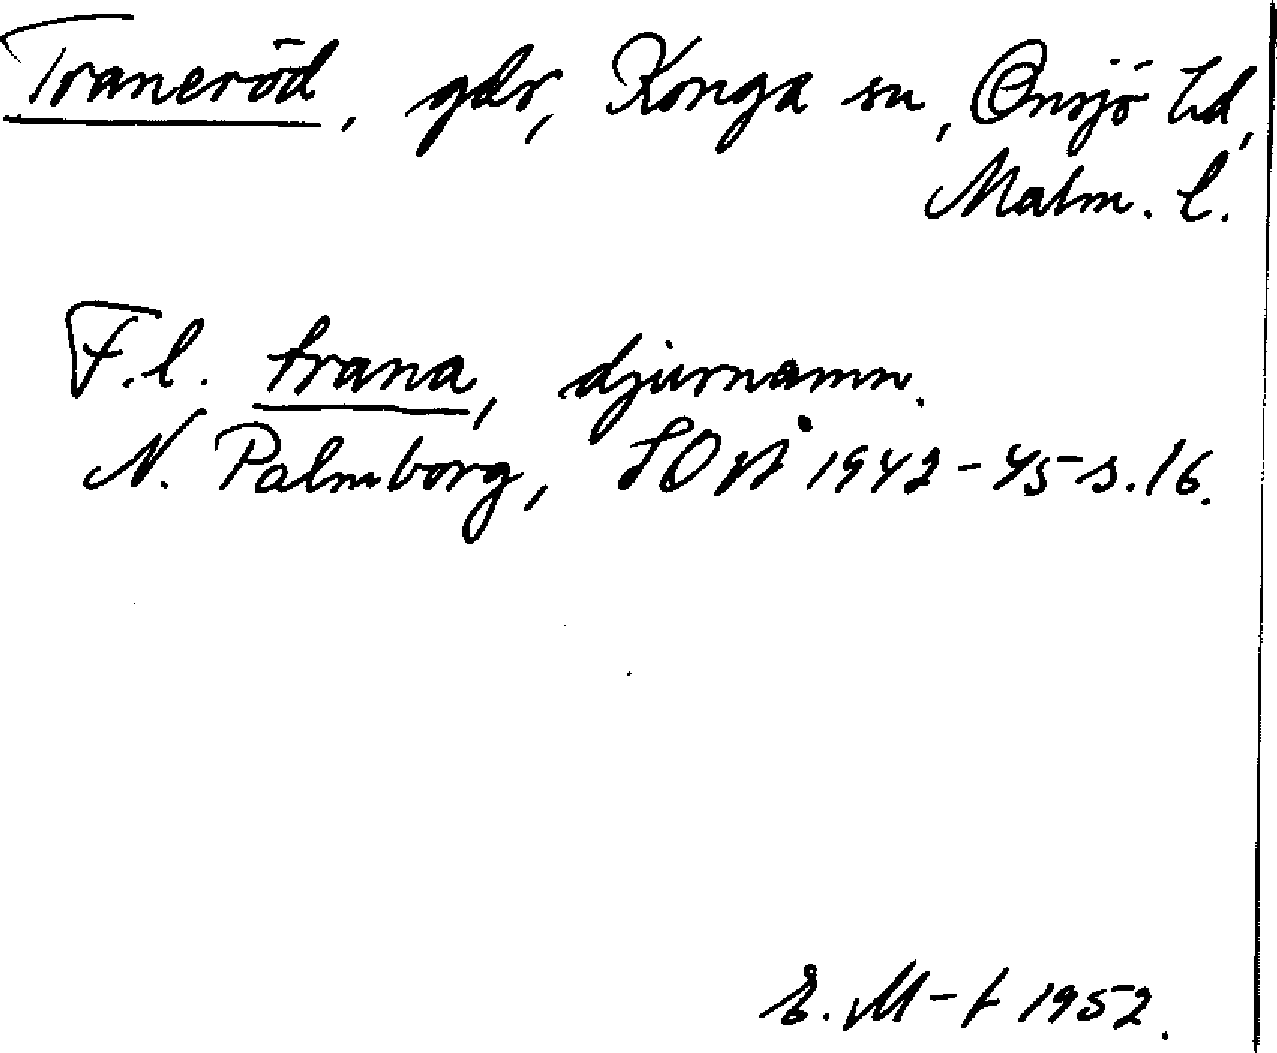 Traneröd, gdr, Konga sn, Onsjö hd,
Malm. l.
F.l. trana, djurnamn.
N. Palmborg, SOÅ 1942-45 s. 16.
E. M-t 1952.